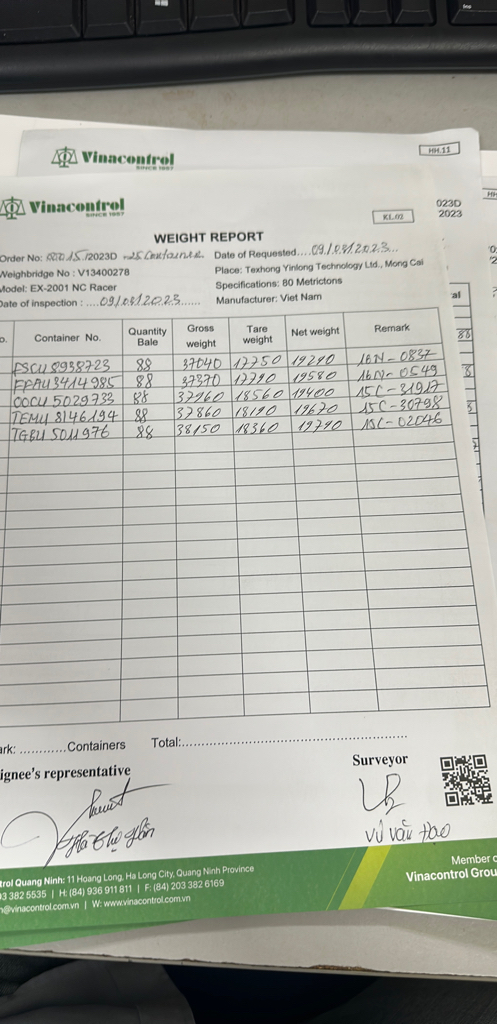 Vinacontrol
SINCE 1957
HH.11
Vinacontrol
SINCE 1957
KL.02
023D
2023
WEIGHT REPORT
Order No: 00015/2023D 25 Container
Date of Requested....09/08/2023...
Weighbridge No : V13400278
Place: Texhong Yinlong Technology Ltd., Mong Cai
Model: EX-2001 NC Racer
Specifications: 80 Metrictons
Date of inspection : ....09/08/2023......
Manufacturer: Viet Nam
o. Container No. Quantity Bale Gross weight Tare weight Net weight Remark
FSCU 8938723 88 37040 17750 19290 16N-0837
FPAU 3414985 88 37370 17790 19580 16N-0549
OOCU 5029733 88 37960 18560 19400 15C-31917
TEMU 8146194 88 37860 18190 19670 15C-30798
TGBU 5011976 88 38150 18360 19790 15C-02046
ark: ............Containers Total:
ignee's representative
Surveyor
Vũ Văn Đạo
trol Quang Ninh: 11 Hoang Long, Ha Long City, Quang Ninh Province
03 382 5535 | H: (84) 936 911 811 | F: (84) 203 382 6169
n@vinacontrol.com.vn | W: www.vinacontrol.com.vn
Member o
Vinacontrol Grou